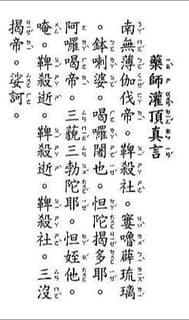 藥師灌頂真言
南無薄伽伐帝。鞞殺社。窶嚕薜琉璃
。鉢喇婆。喝囉闍也。怛陀揭多耶。
阿囉喝帝。三藐三勃陀耶。怛姪他。
唵。鞞殺逝。鞞殺逝。鞞殺社。三沒
揭帝。娑訶。